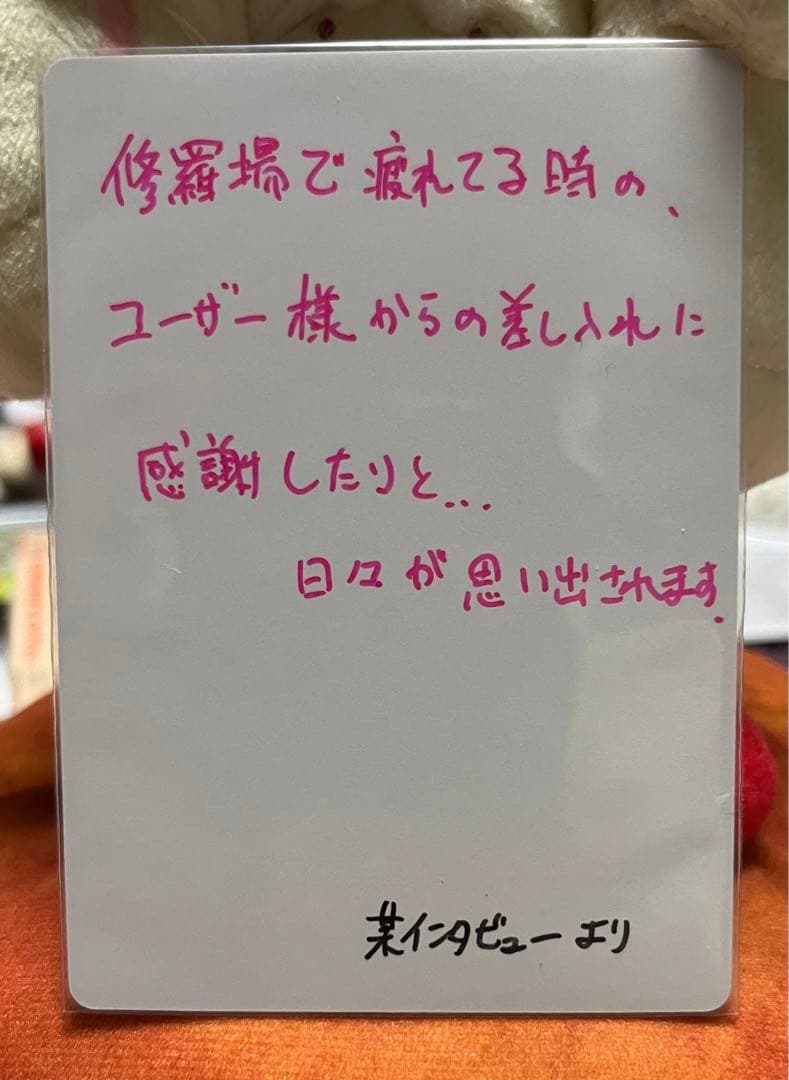 修羅場で疲れてる時の、
ユーザー様からの差し入れに
感謝したりと...
日々が思い出されます.
某インタビューより